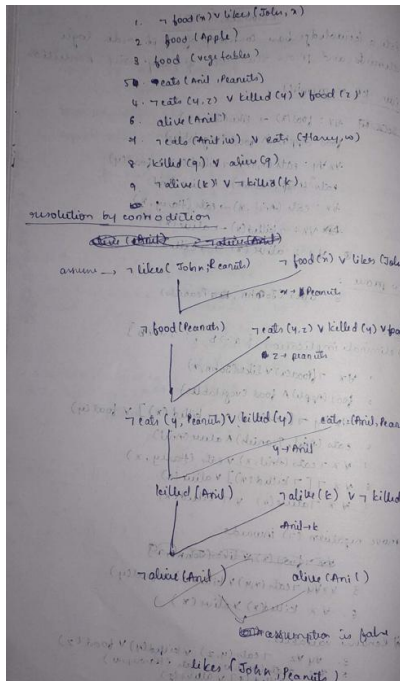 1. ¬ food(x) ∨ likes(John, x)
2. food (Apple)
3. food (vegetables)
5. eats (Anil, Peanuts)
4. ¬ eats (y, z) ∨ killed(y) ∨ food(z)
6. alive (Anil)
7. ¬ eats (Anil, w) ∨ eats (Harry, w)
8. killed (g) ∨ alive (g)
9. ¬ alive (k) ∨ ¬ killed (k)
resolution by contradiction
assume → ¬ likes (John, Peanuts) ¬ food (x) ∨ likes (Joh
x → Peanuts
¬ food (Peanuts) ¬ eats (y, z) ∨ killed (y) ∨ foo
z → peanuts
¬ eats (y, Peanuts) ∨ killed (y) eats (Anil, Pean
y → Anil
killed (Anil) ¬ alive (k) ∨ ¬ killed
Anil → k
¬ alive (Anil) alive (Anil)
assumption is false
likes (John, Peanuts)